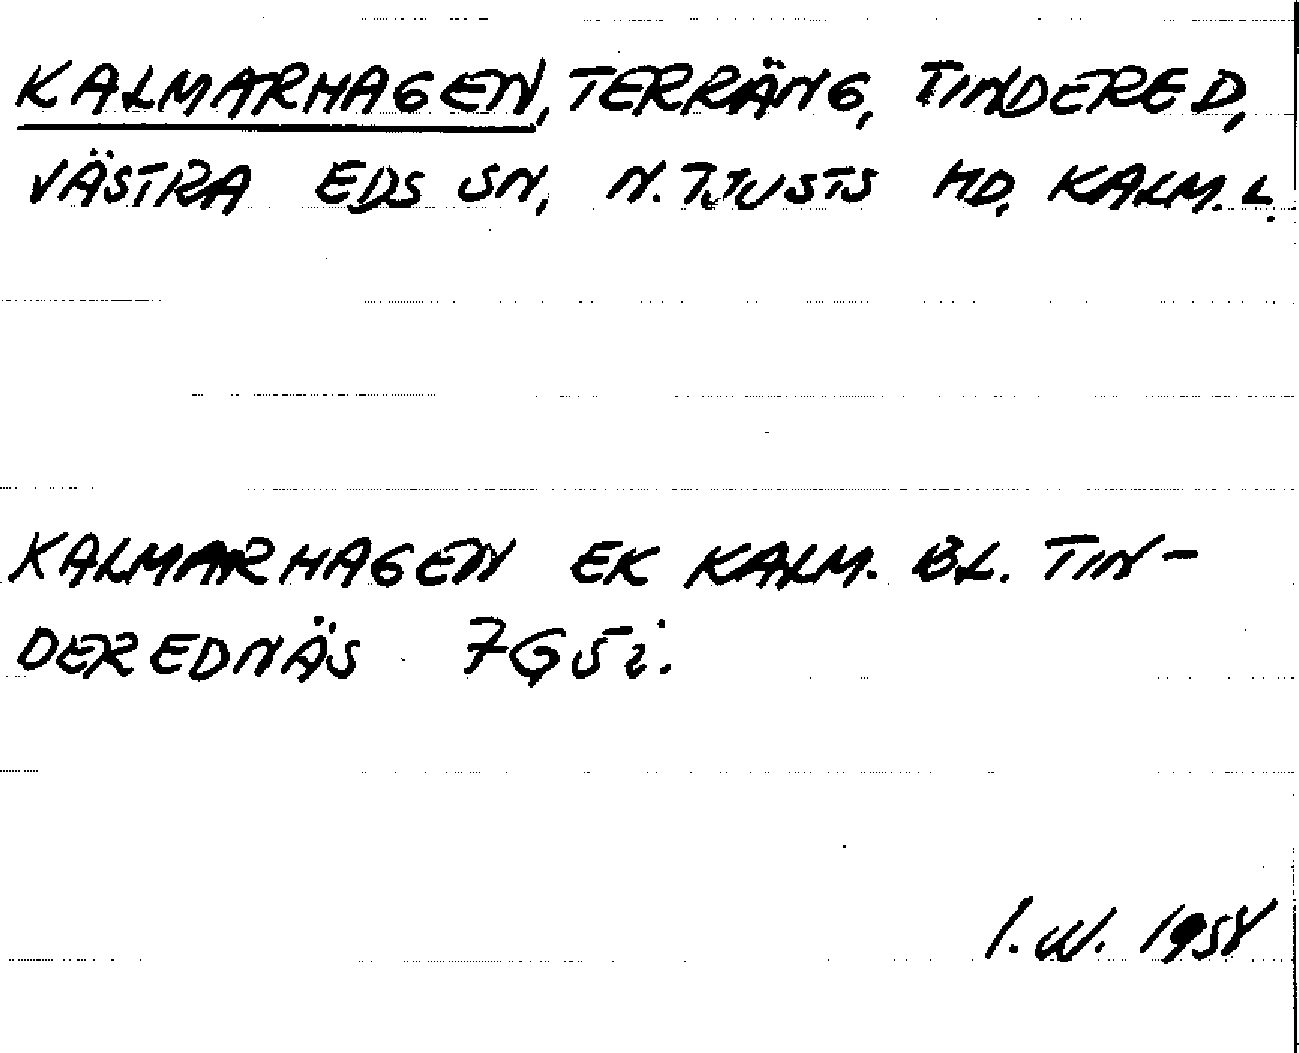 KALMARHAGEN, TERRÄNG, TINDERED,
VÄSTRA EDS SN, N. TJUSTS HD, KALM. L.
KALMARHAGEN EK KALM. BL. TIN-
DEREDNÄS 7G5i.
I. W. 1958